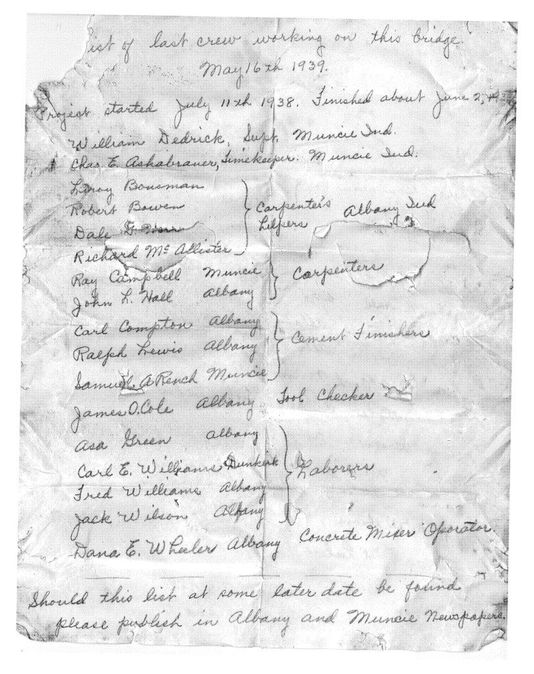 ist of last crew working on this bridge
May 16th 1939.
Project started July 11th 1938. Finished about June 2,
William Dedrick, Supt. Muncie Ind.
Chas. E. Ashabraner, Timekeeper. Muncie Ind.
Leroy Bousman
Robert Bowen
Dale G.
Richard McAllister
Carpenter's Helpers
Albany Ind
Ray Campbell Muncie
John L. Hall Albany
Carpenters
Carl Compton Albany
Ralph Lewis Albany
Samuel A Rench Muncie
Cement Finishers
James O. Cole Albany Tool Checker
Asa Green Albany
Carl E. Williams Dunkirk
Fred Williams Albany
Jack Wilson Albany
Laborers
Dana E. Wheeler Albany Concrete Mixer Operator.
Should this list at some later date be found
please publish in Albany and Muncie Newspapers.